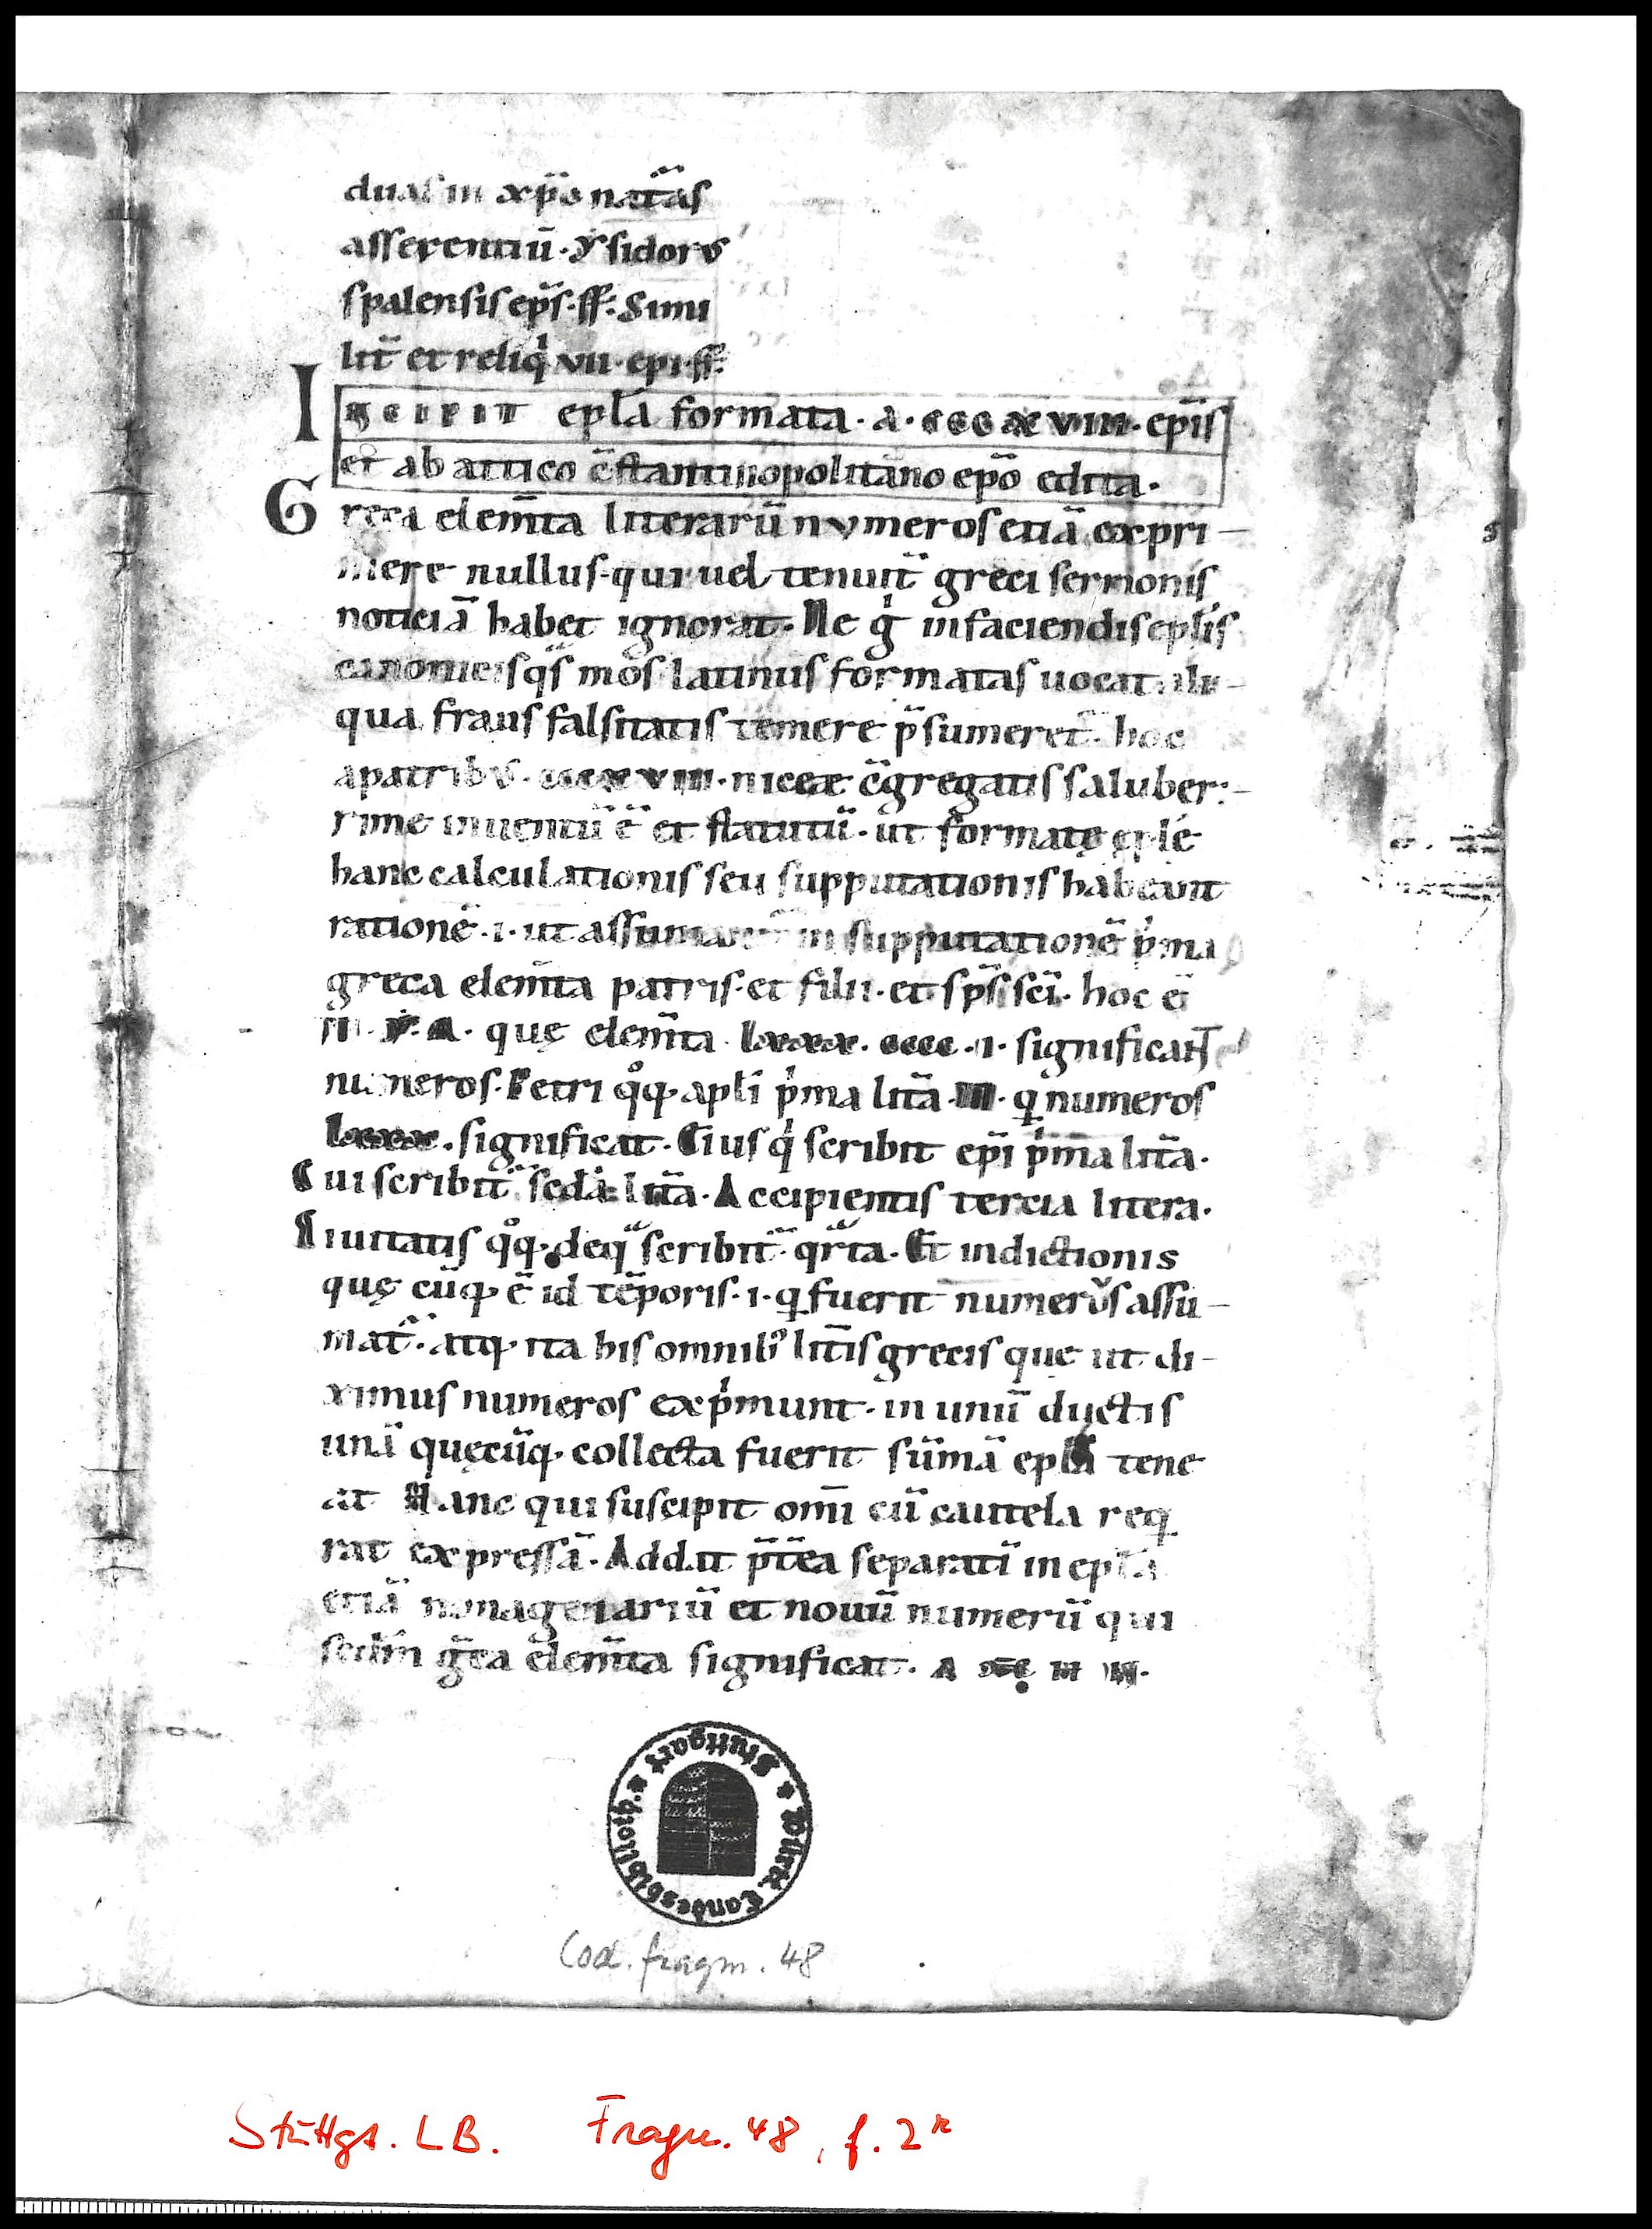 duas in xp̄o natās
asserentiū · Ysidorꝰ
spalensis ep̄s · ſſ: Simi
lit̄ et reliqͥ VII · epi · ſſ:
Incipit epl̄a formata · a · CCC XVIII · ep̄is
et ab attico c̄stantinopolitāno ep̄o edita ·
Greca elem̄ta literarū nvmeros etiā expri-
mere nullus · qui uel tenuit̄ greci sermonis
noticiā habet ignorat · Ne gͥ in faciendis epl̄is
canonicis qͣs mos latinus formatas uocat ali-
qua fraus falsitatis temere p̄sumeret̄ · hoc
a patribꝰ · CCCXVIII · niceæ c̄gregatis saluber:-
rime inuentū ē et statutū · ut formatę epl̄e
hanc calculationis seu supputationis habeant
rationē · i · ut assumat̄ in supputationē pͥma
greca elem̄ta patris · et filii · et sp̄s sc̄i · hoc ē
Π · Υ · A · quę elem̄ta lxxx · cccc · i · significant
numeros · Petri qͦq; apl̄i pͥma litā · Π · qͥ numeros
lxxx · significat · Eius qͥ scribit ep̄i pͥma litā ·
Cui scribit̄ sc̄da litā · Accipientis tercia litera ·
Ciuitatis qͦq; de qͣ scribit̄ · qͣrta · Et indictionis
quę cūq; ē id tēporis · i · qͥ fuerit numerꝰs assu-
mat̄ · atq; ita his omnibꝰ lit̄is grecis quę ut di-
ximus numeros expͥmunt · in unū ductis
unā quęcūq; collecta fuerit sūmā epl̄a tene
at Hanc qui suscipit om̄i cū cautela reqͥ
rat expressā · Addit p̄t̄ea separatī in epl̄a
etiā nonagenariū et nouū numerū qui
scd̄m ḡca elem̄ta significat · A
Württ. Landesbiblioth. * Stuttgart *
Cod. fragm. 48
Stuttgt. LB. Fragm. 48, f. 2ʳ